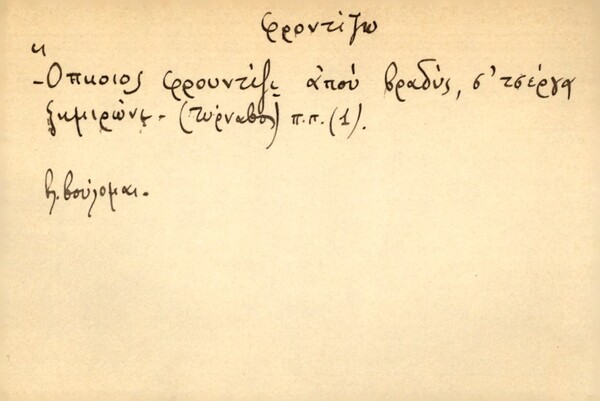 φροντίζω
-Ὅποιος φρουντίζει ἀπού βραδύς, σ' τσέργα
ξημιρώνει. - (Τύρναβος) π.π. (1).
βλ. βούλομαι.